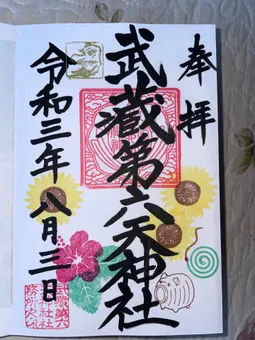 奉拝
武蔵第六天神社
令和三年八月三日
武蔵第六
天神社